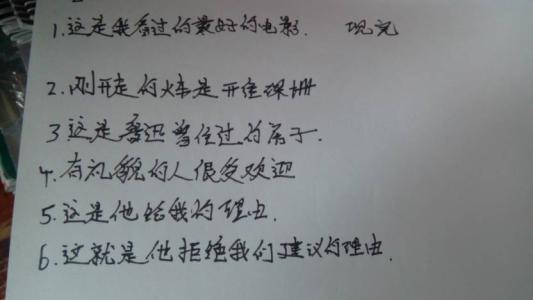 1.这是我看过的最好的电影. 现完
2.刚开走的火车是开往深圳
3 这是鲁迅曾住过的房子.
4.有礼貌的人很受欢迎
5.这是他给我的理由.
6.这就是他拒绝我们建议的理由.